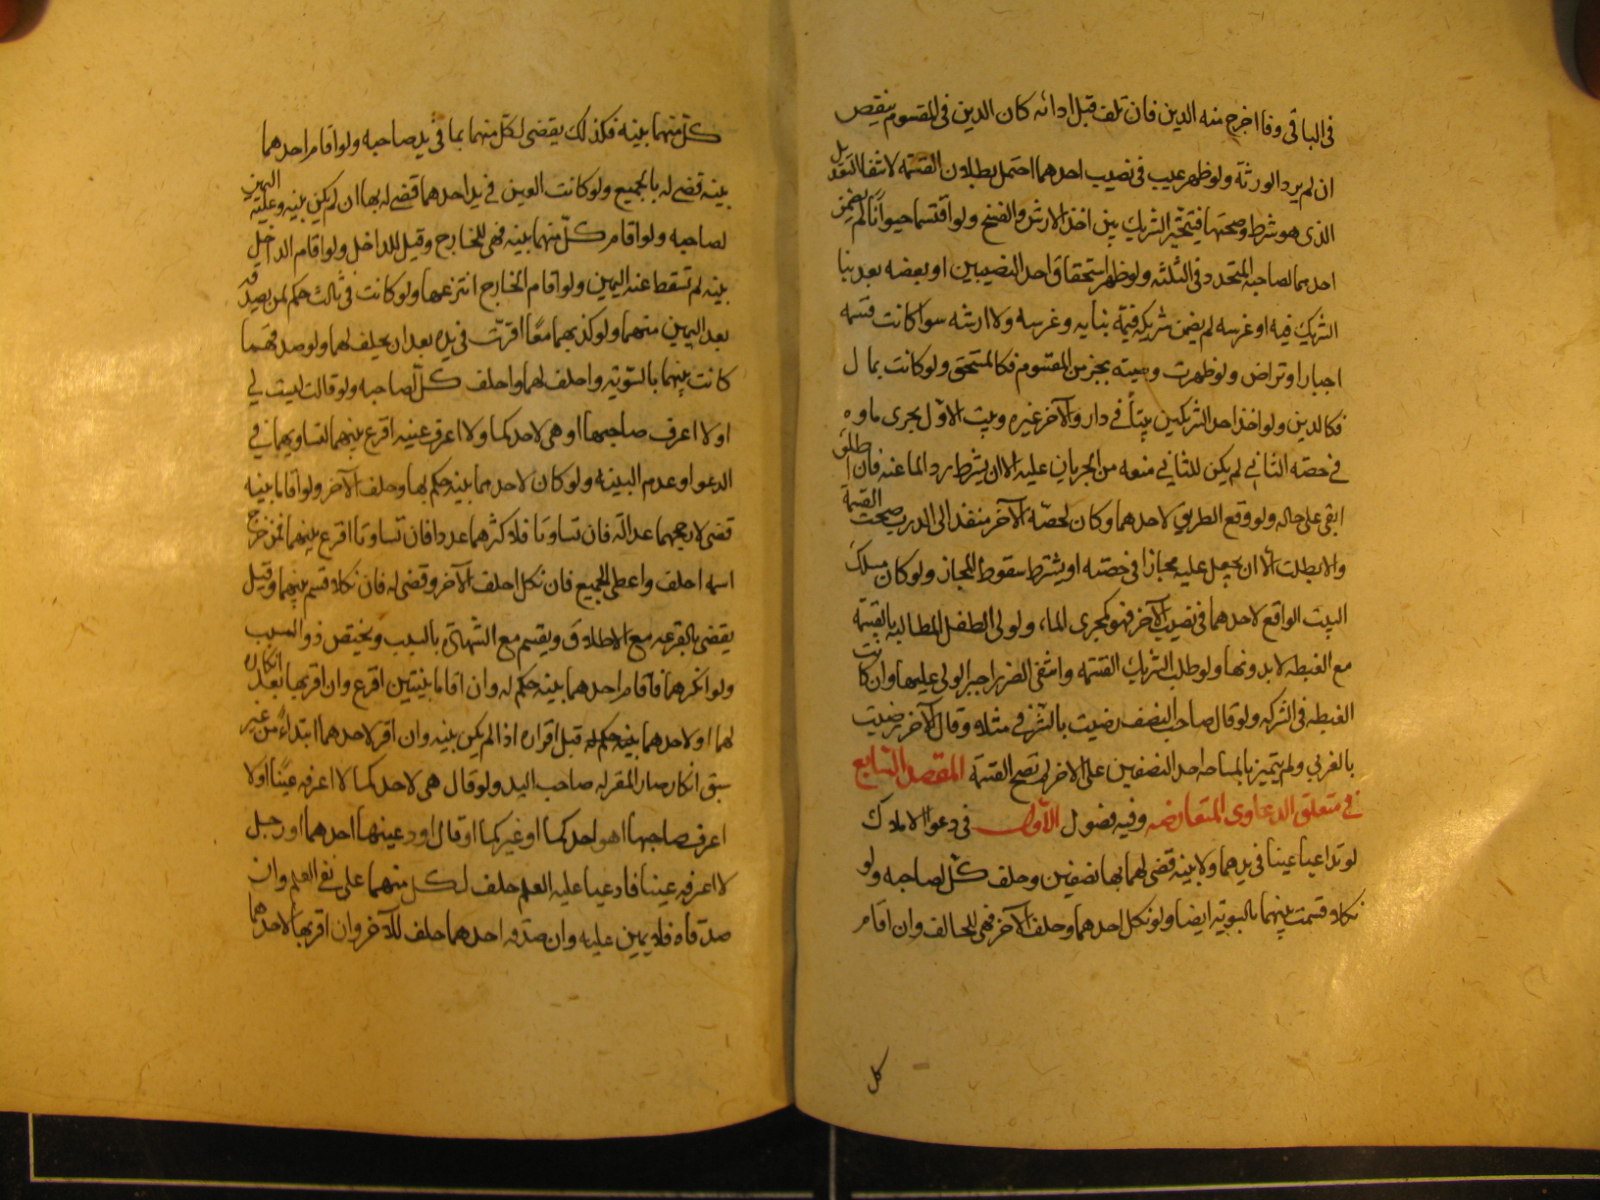 فى الباقى وفا اخرج منه الدين فان تلف قبل ادائه كان الدين فى المقسوم ينقص
ان لم يرد الورثة ولو ظهر عيب فى نصيب احدهما احتمل بطلان القسمة لانتفا التعديل
الذى هو شرط وصحتها فيتخير الشريك بين اخذ الارش والفسخ ولو اقتسما حيوانا لم يضمن
احدهما لصاحبه المتجدد فى الثلثه ولو ظهر استحقاق احد النصيبين او بعضه بعد بنا
الشريك فيه او غرسه لم يضمن شريكه قيمة بنايه وغرسه ولا ارشه سوا كانت قسمه
اجبار او تراض ولو ظهرت وصيته بجز من المقسوم فكالمستحق ولو كانت بمال
فكالدين ولو اخذ احد الشريكين بيتًا فى دار والآخر غيره وبيت الاوّل يجرى ماوه
فى حصه الثانى لم يكن للثانى منعه من الجريان عليه الا ان يشترط رد الما عنه فان اطلق
ابقى على حاله ولو وقع الطريق لاحدهما وكان لحصّة الآخر منفذ الى الدرب صحت القسمة
والا بطلت الّا ان يجعل عليه مجازا فى حصته او يشترط سقوط المجاز ولو كان مسلك
البيت الواقع لاحدهما فى نصيب الآخر فهو كمجرى الماء ولولى الطفل المطالبه بالقسمة
مع الغبطه لا بدونها ولو طلب الشريك القسمه وانتفى الضرر اجبر الولى عليها وان كانت
الغبطه فى الشركه ولو قال صاحب النصف رضيت بالشرقى مثلا وقال الآخر رضيت
بالغربى ولم يتميز بالمساحه احد النصفين على الاخر لم تصح القسمة المقصد السابع
فى متعلق الدعاوى المتعارضه وفيه فصول الأول فى دعوا الاملاك
لو تداعيا عينا فى يدهما ولا بينه قضى لهما بها نصفين وحلف كلّ لصاحبه ولو
نكلا قسمت بينهما بالسوية ايضا ولو نكل احدهما وحلف الآخر فهى للحالف وان اقام
كل
كلّ منهما بينه فكذلك يقضى لكلّ منهما بما فى يد صاحبه ولو اقام احدهما
بينه قضى له بالجميع ولو كانت العين فى يد احدهما قضى له بها ان لم يكن بينه وعليه اليمين
لصاحبه ولو اقام كلّ منهما بينه فهى للخارج وقيل للداخل ولو اقام الداخل
بينه لم تسقط عنه اليمين ولو اقام الخارج انتزعها ولو كانت فى ثالث حكم لمن يصدقه
بعد اليمين منهما ولو كذبهما معًا اقرّت فى يده بعد ان يحلف لهما ولو صدقهما
كانت بينهما بالسّويّة واحلف لهما واحلف كلّ لصاحبه ولو قالت ليست لى
او لا اعرف صاحبها او هى لاحدكما ولا اعرف عينه اقرع بينهما لتساويهما فى
الدعوا وعدم البينه ولو كان لاحدهما بينه حكم لها وحلف الآخر ولو اقاما بينه
قضى لارجحهما عدالة فان تساوتا فلاكثرهما عددا فان تساوتا اقرع بينهما فمن خرج
اسمه احلف واعطى الجميع فان نكل احلف الآخر وقضى له فان نكلا قسم بينهما وقيل
يقضى بالقرعه مع الاطلاق ويقسم مع الشهادة بالسبب ويختص ذو السبب
ولو انكرهما فاقام احدهما بينه حكم له وان اقاما بينتين اقرع وان اقر بها بعد انكاره
لهما او لاحدهما بينه حكم له قبل اقراره اذا لم يكن بينه وان اقر لاحدهما ابتداءً من غير
سبق انكار صار المقر له صاحب اليد ولو قال هى لاحدكما لا اعرفه عينًا او لا
اعرف صاحبها اهو احدكما او غيركما او قال اودعينها احدهما او رجل
لا اعرفه عينا فادعيا عليه العلم حلف لكل منهما على نفى العلم وان
صدّقاه فلا يمين عليه وان صدّقه احدهما حلف للآخر وان اقر بها لاحدهما